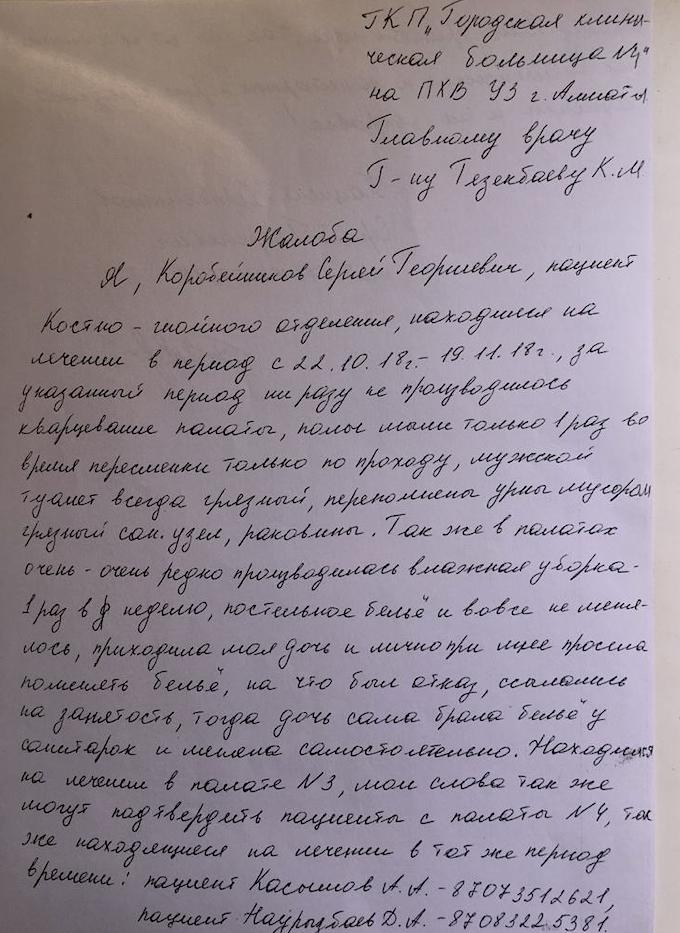 ГКП „Городская клини-
ческая больница №4"
на ПХВ УЗ г. Алматы
Главному врачу
Г-ну Тезекбаеву К.М.
Жалоба
Я, Коробейников Сергей Георгиевич, пациент
Костно - гнойного отделения, находился на
лечении в период с 22.10.18г.- 19.11.18г., за
указанный период ни разу не производилось
кварцевание палаты, полы мыли только 1 раз во
время пересменки только по проходу, мужской
туалет всегда грязный, переполнены урны мусором
грязный сан. узел, раковины. Так же в палатах
очень - очень редко производилась влажная уборка-
1 раз в неделю, постельное бельё и вовсе не меня-
лось, приходила моя дочь и лично при мне просила
поменять бельё, на что был отказ, ссылались
на занятость, тогда дочь сама брала бельё у
санитарок и меняла самостоятельно. Находился
на лечении в палате N3, мои слова так же
могут подтвердить пациенты с палаты N4, так
же находящиеся на лечении в тот же период
времени: пациент Касымов А.А. - 87073512621,
пациент Наурызбаев Д.А. - 87083225381.